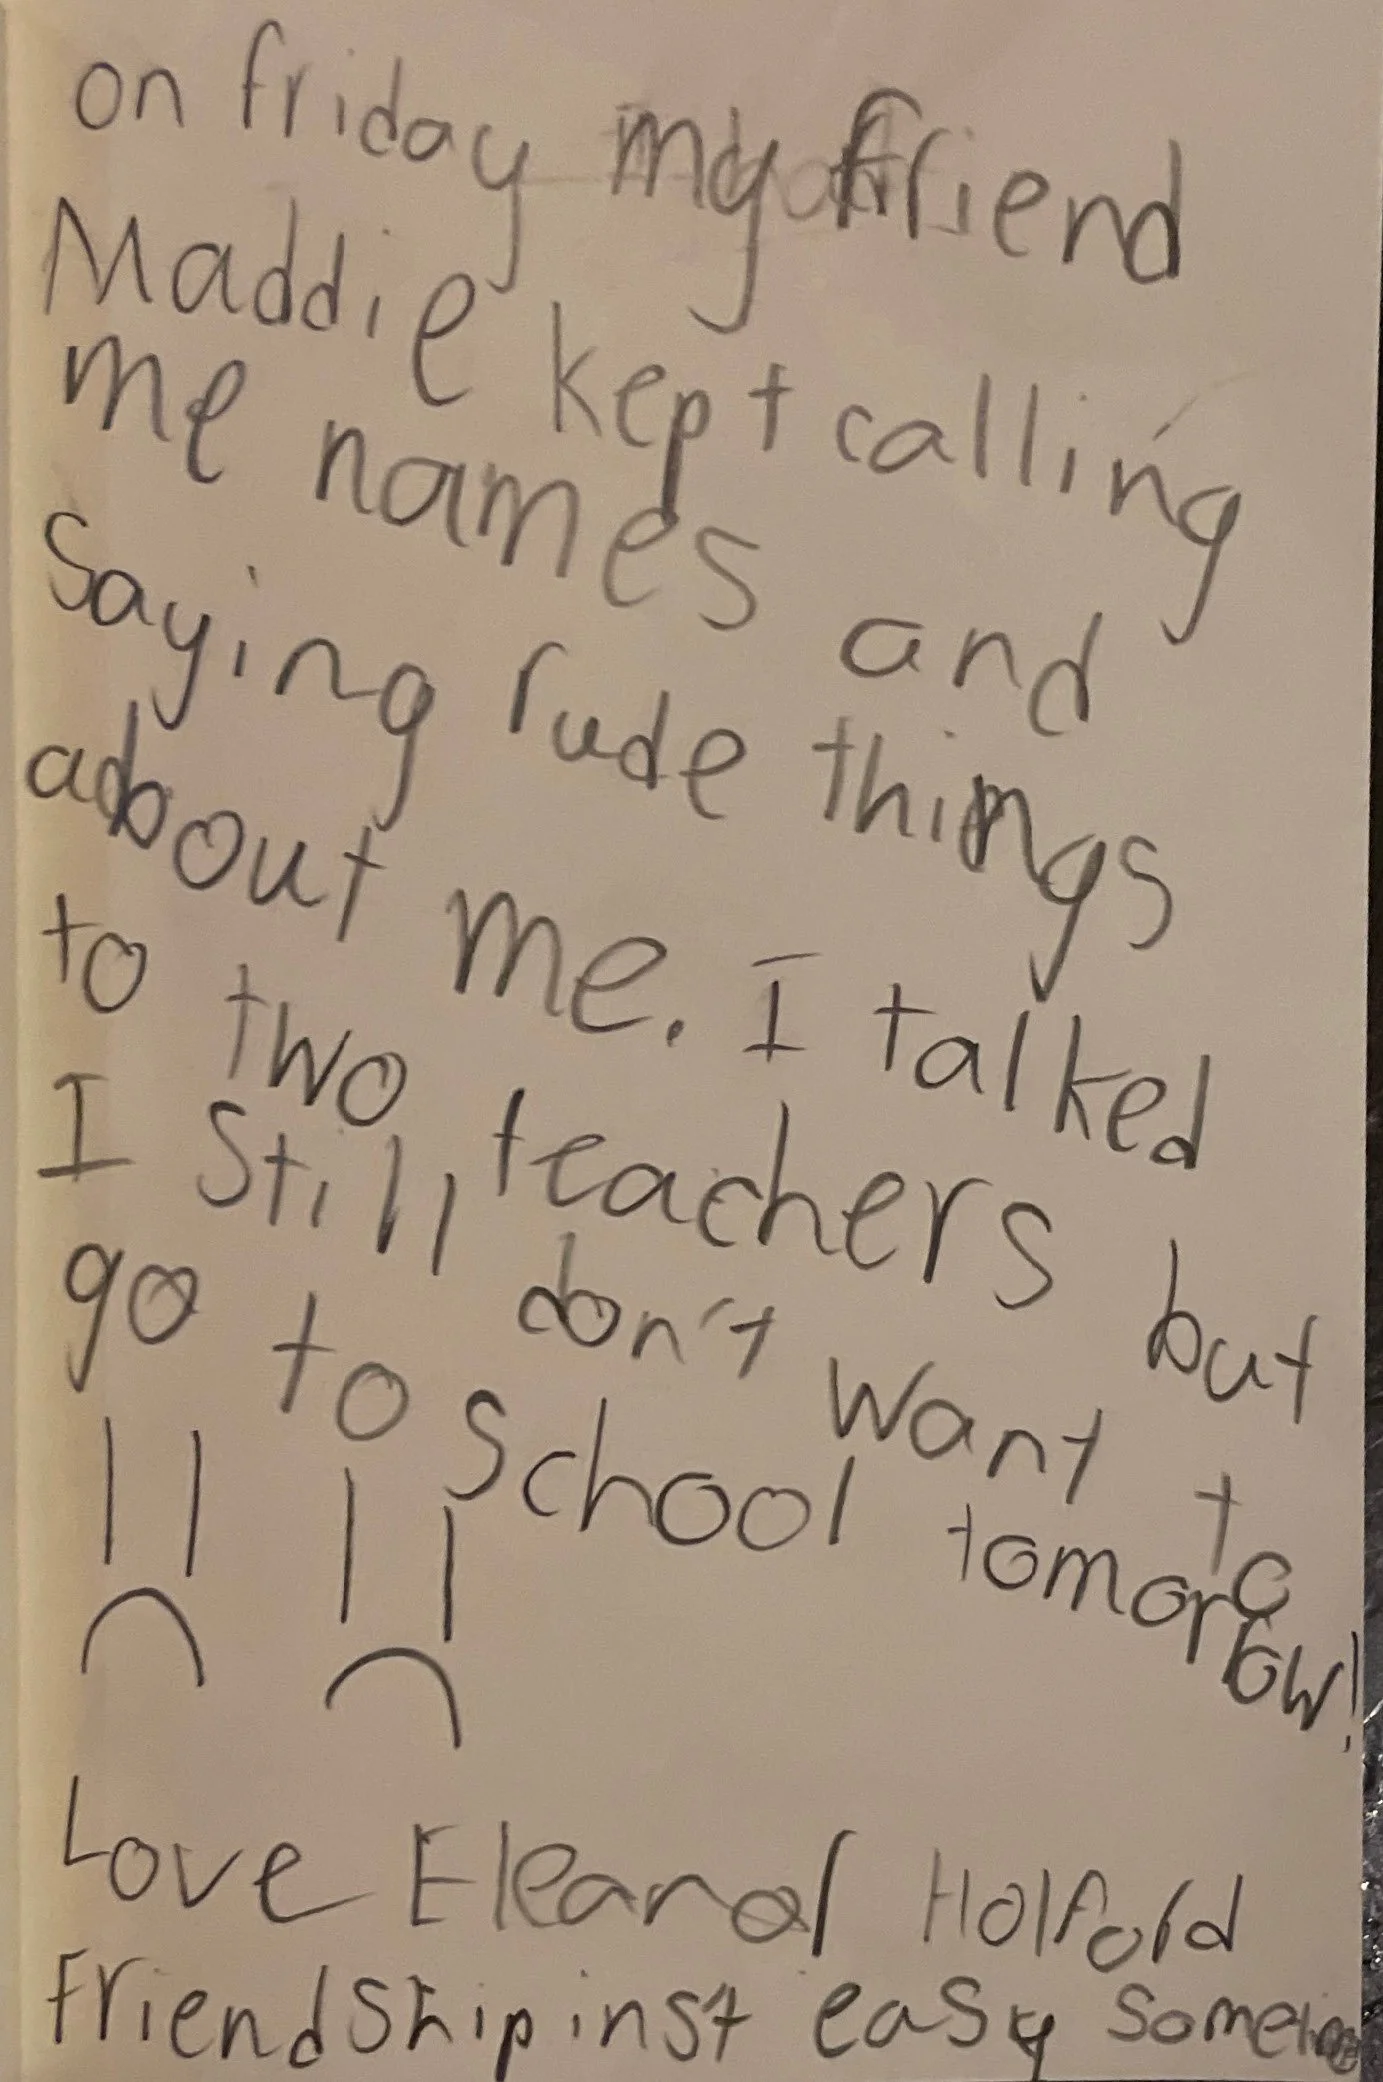 on friday my friend
Maddie kept calling
me names and
Saying rude things
about me. I talked
to two teachers but
I Still don't want to
go to School tomorrow!
Love Eleanor Holford
friendship inst easy